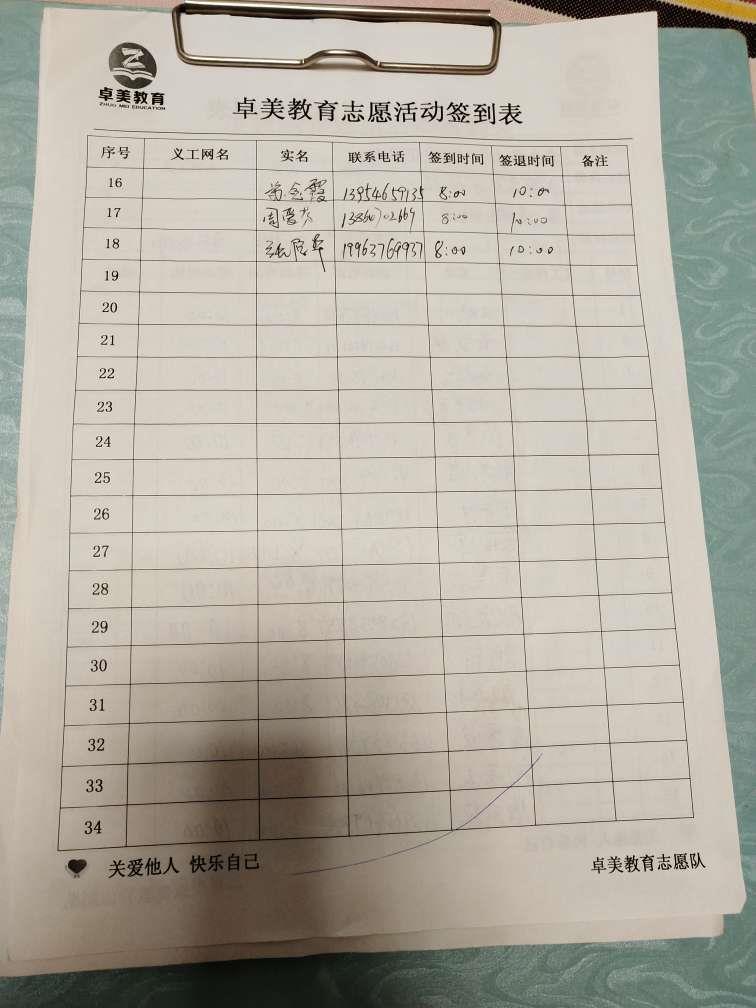 卓美教育
ZHUO MEI EDUCATION
卓美教育志愿活动签到表
序号 义工网名 实名 联系电话 签到时间 签退时间 备注
16 13954659135 8:00 10:00
17 周 8:00 10:00
18 19963769937 8:00 10:00
19
20
21
22
23
24
25
26
27
28
29
30
31
32
33
34
关爱他人 快乐自己 卓美教育志愿队